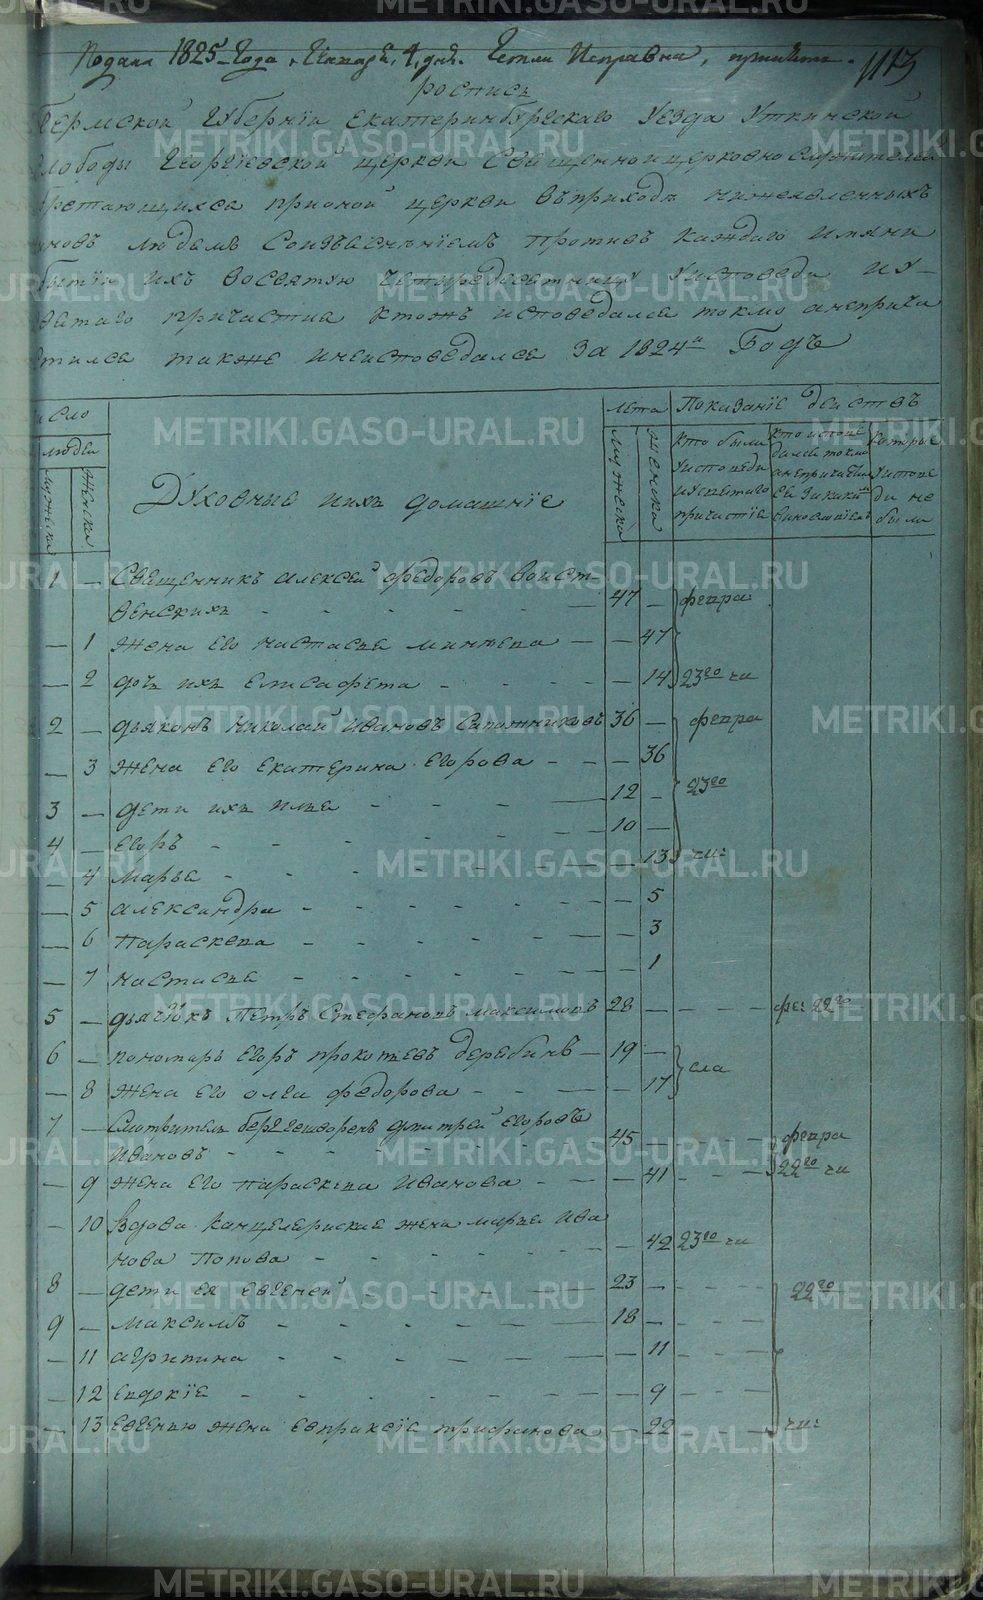 Подана 1825 Года Генваря 4 дня. Естли Исправна, принять. 113
роспись
Пермской Губернiи Екатеринбургскаго Уезда Уткинской
слободы Георгiевской церкви Священноицерковнослужителей
обретающихся прионой церкви въприходѣ нижеявленныхъ
чиновъ людемъ Соизъяснѣнiемъ противъ каждаго имяни
бытiи ихъ восвятую четыредесятницу Уисповеди иУ-
святаго причастиа ктожъ исповедался токмо анеприча
стился также инеисповедался За 1824й Годъ
число
людей
мужеска
женска
Духовные иихъ домашнiе
лета
мужеска
женска
Показанiе действъ
кто были
Уисповеди
иУсвятаго
причастiя
кто испове
дался токмо
анепричасти
ся
которые
Уиспове
ди не
были
1 — Священникъ алексей федоровъ воист-
венскихъ - - - - - — 47 — февра
— 1 жена его настасья минѣева — — 47
— 2 дочь ихъ елисафета - - - - - 14 23го чи
2 — дьяконъ николай ивановъ Сапожниковъ 36 — февра
— 3 жена его екатерина егорова - - — 36
3 — дети ихъ илья - - - — 12 - 23го
4 — егоръ - - - - - — 10 —
— 4 марья - - - - - - — 13 чи:
— 5 александра - - - - - - — 5
— 6 параскева - - - - - — 3
— 7 настасья - - - - - - — 1
5 — дьячекъ Петръ Стефановъ максимовъ 28 — - - - фев: 22го
6 — пономарь егоръ прокопьевъ дерябинъ — 19 —
— 8 жена его олга федорова - - - — 17 сла
7 — Смотритель берггешворенъ дмитрей егоровъ
ивановъ - - - - - - - 45 - - - февра
— 9 жена его параскева иванова - - — 41 - - — 22го чи
- 10 вдова канцелариская жена марья ива
нова Попова - - - - - — 42 23го чи
8 — дети ея евгеней - - - — 23 — - - - 22го
9 — максимъ - - - - - — 18 — - - -
— 11 агрипина - - - - — — — 11 - - -
— 12 евдокiя - - - - - - — — 9 - - -
— 13 евгенью жена евпраксiя трифанова — 22 - - - чи:
METRIKI.GASO-URAL.RU